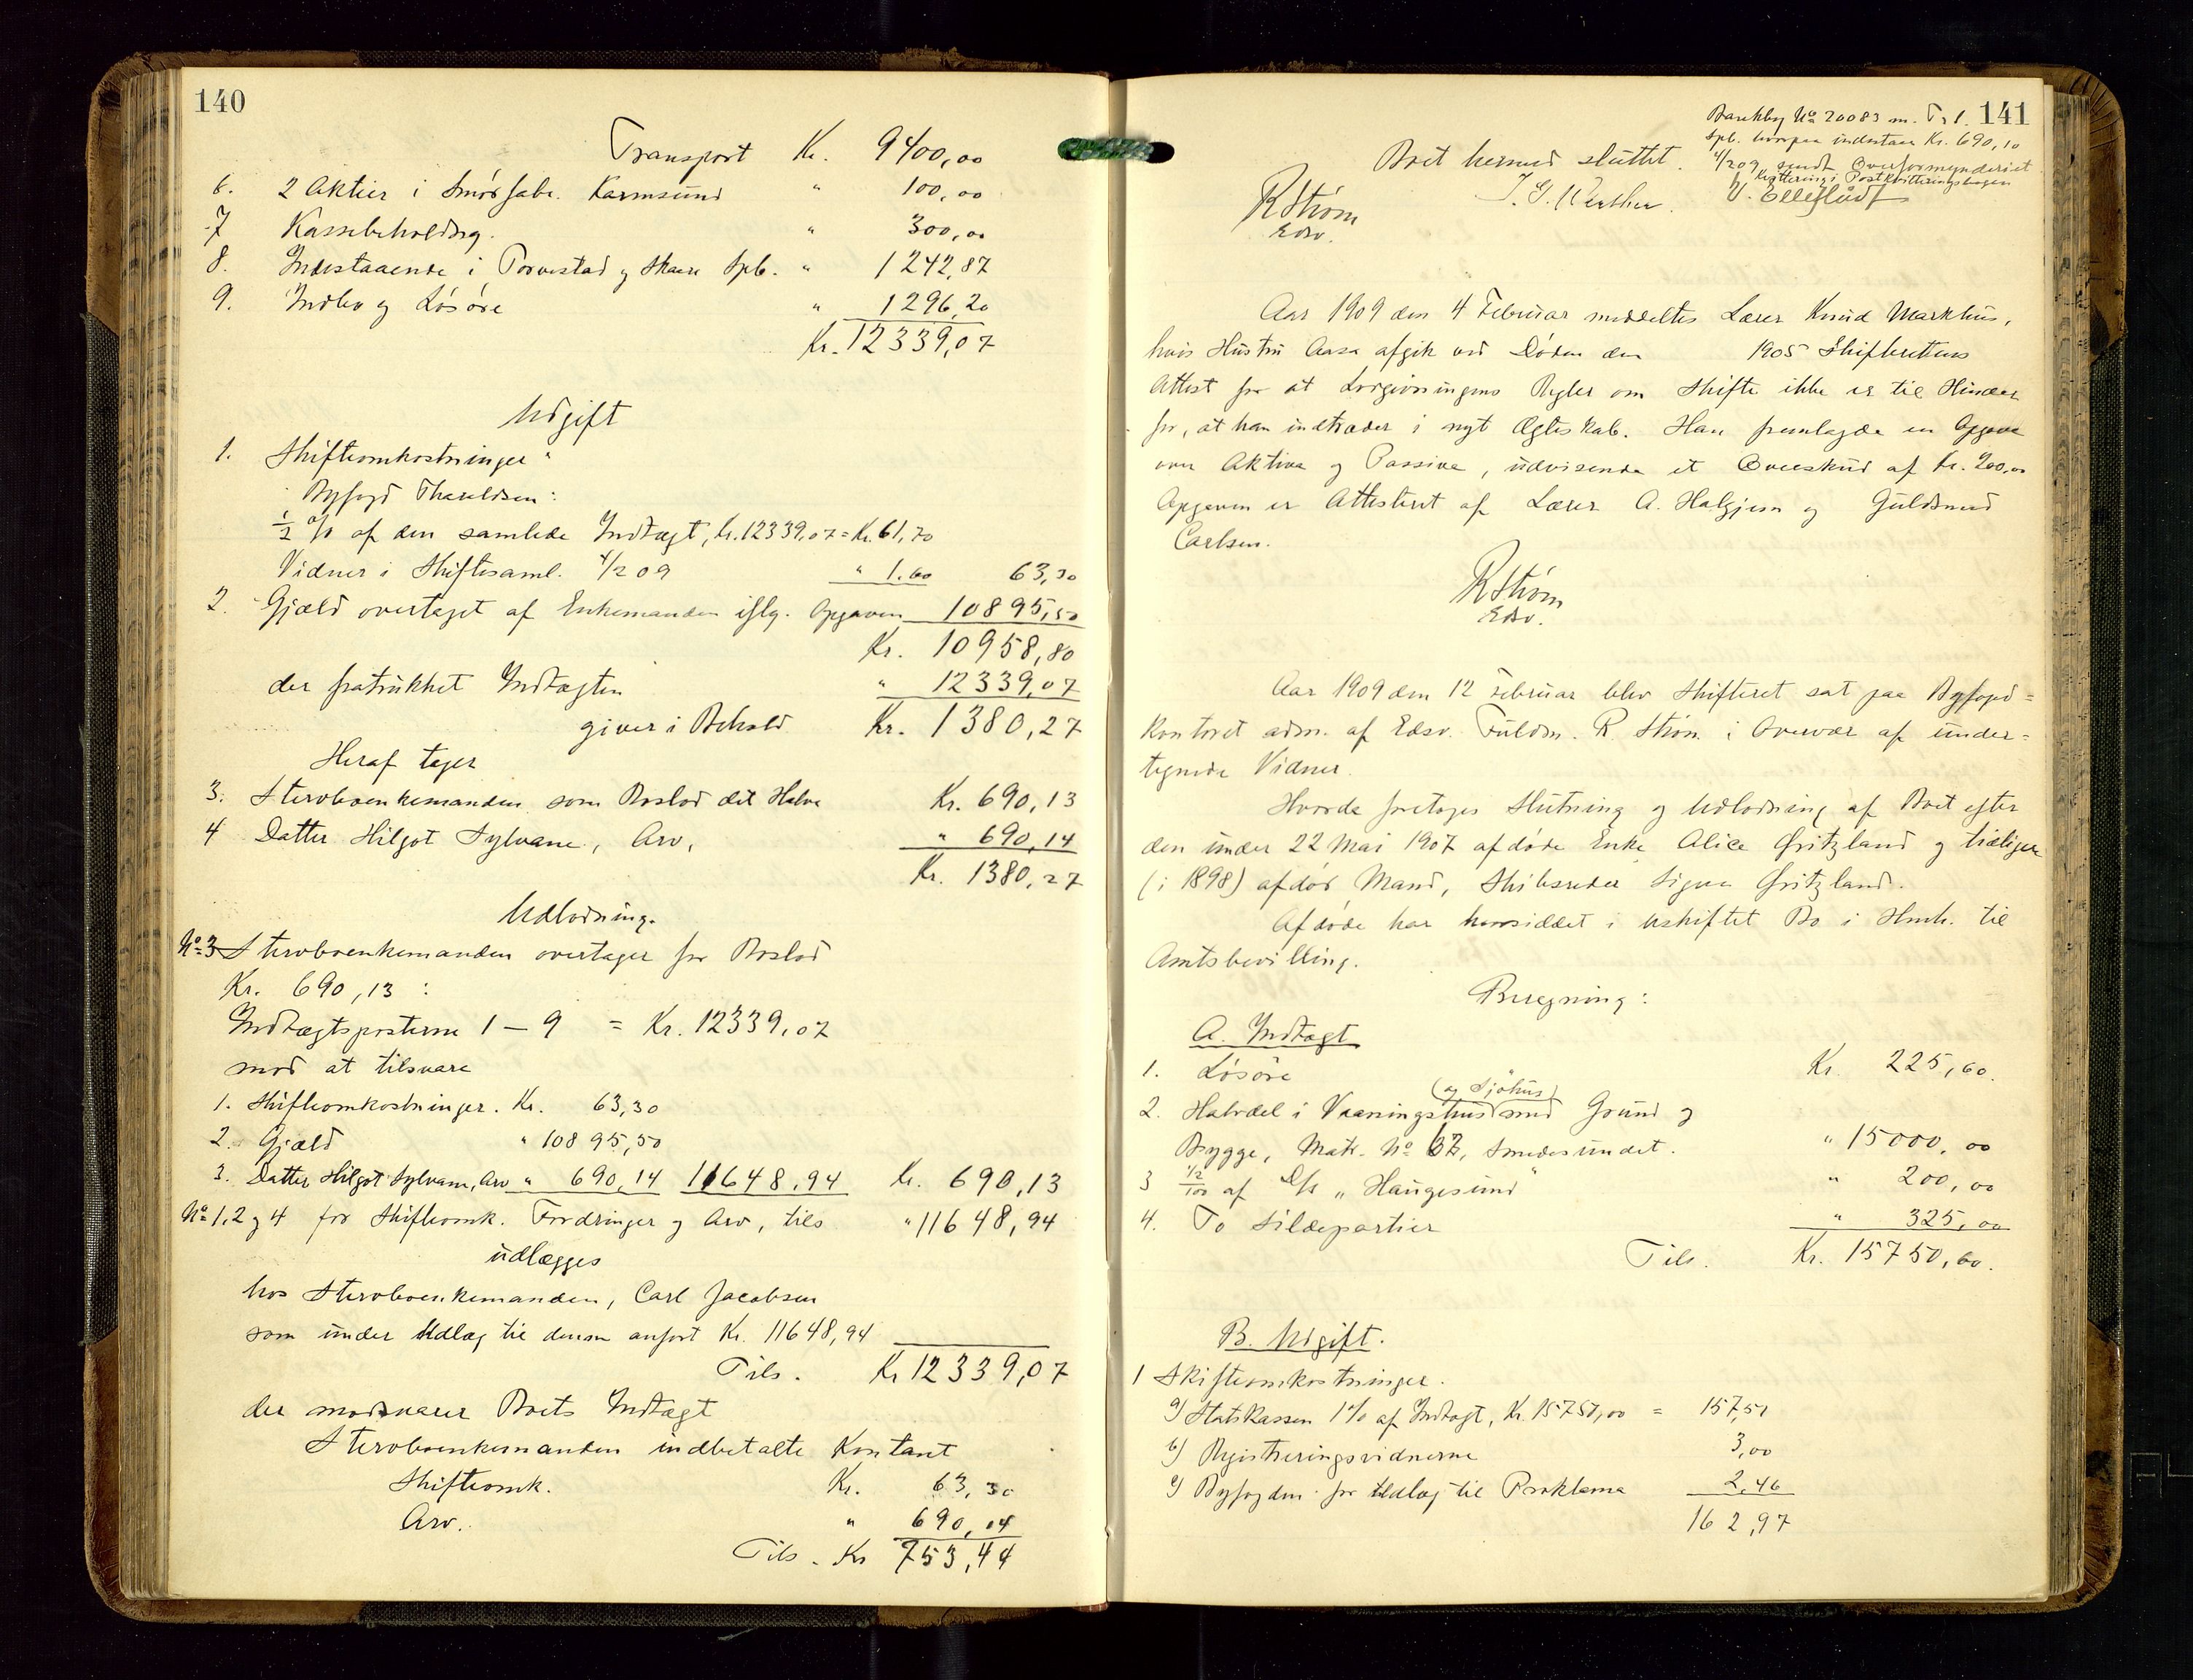 140
Transport Kr. 9400,00
6. 2 Aktier i Smørfabr. Karmsund " 100,00
7 Kassebeholdng. " 300,00
8. Indestaaende i Torvestad og Skaare Spb. " 1242,87
9. Indbo og Løsøre " 1296,20
Kr. 12339,07
Udgift
1. Skifteomkostninger "
Byfogd Tharaldsen:
1/2 % af den samlede Indtægt, Kr. 12339,07 = Kr. 61,70
Vidner i Skiftesaml. 4/2 09 " 1.60 63,30
2. Gjæld overtaget af Enkemanden iflg. Opgaven 10895,50
Kr. 10958,80
der fratrukket Indtægten " 12339,07
giver i Behold Kr. 1380,27
Heraf tager
3. Stervboenkemanden som Boslod det Halve Kr. 690,13
4 Datter Hilgot Sylvane, Arv, " 690,14
Kr. 1380,27
Udlodning.
No 3 Stervboenkemanden overtager for Boslod
Kr. 690,13 :
Indtægtsposterne 1 – 9 = Kr. 12339,07
mod at tilsvare
1. Skifteomkostninger. Kr. 63,30
2. Gjæld " 10895,50
3. Datter Hilgot Sylvane, Arv " 690,14 11648,94 Kr. 690,13
No 1, 2 og 4 for Skifteomk. Fordringer og Arv, tils " 11648,94
udlægges
hos Stervboenkemanden, Carl Jacobsen
som under Udlæg til denne anført Kr. 11648,94
Tils. Kr 12339,07
der modsvarer Boets Indtægt
Stervboenkemanden indbetalte Kontant
Skifteomk. Kr. 63,30
Arv. " 690,14
Tils. Kr 753,44
141
Bankbog No 20083 m. T & S.
Spb. hvorpaa indestaar Kr. 690,10
4/2 09 sendt Overformynderiet
Kvittering i Postkvitteringsbogen
Boet hermed sluttet.
RStrøm
Edsv.
Aar 1909 den 4 Februar meddeltes Lærer Knud Markhus,
hvis Hustru Aasa afgik ved Døden den 1905 Skifterettens
Attest for at Lovgivningens Regler om Skifte ikke er til Hinder
for, at han indtræder i nyt Ægteskab. Han fremlagde en Opgave
over Aktiva og Passiva, udvisende et Overskud af Kr. 200,00
Opgaven er Attesteret af Lærer A. Halgjem og Guldsmed
Carlsen.
RStrøm
Edsv.
Aar 1909 den 12 Februar blev Skifteret sat paa Byfogd=
kontoret adm. af Edsv. Fuldm. R. Strøm i Overvær af under=
tegnede Vidner.
Hvorda foretoges Slutning og Udlodning af Boet efter
den under 22 Mai 1907 afdøde Enke Alice Gritzland og tidligere
(i 1898) afdød Mand, Skibsreder Sigva Gritzland.
Afdøde har hensiddet i uskiftet Bo i Hmh. til
Amtsbevilling.
Beregning:
A. Indtægt
1. Løsøre Kr. 225,60.
(og Sjøhus)
2. Halvdel i Vaaningshus med Grund og
Brygge, Matr. No 67, Smedesundet. " 15000,00
3 1/2/100 af D/S „Haugesund" " 200,00
4. To Sildepartier " 325,00
Tils. Kr. 15750,60.
B. Udgift.
1 Skifteomkostninger.
a) Statskassen 1% af Indtægt, Kr. 15750,00 = 157,51
b) Registreringsvidnerne 3,00
c) Byfogden for Udlæg til Proklama 2,46
162,97